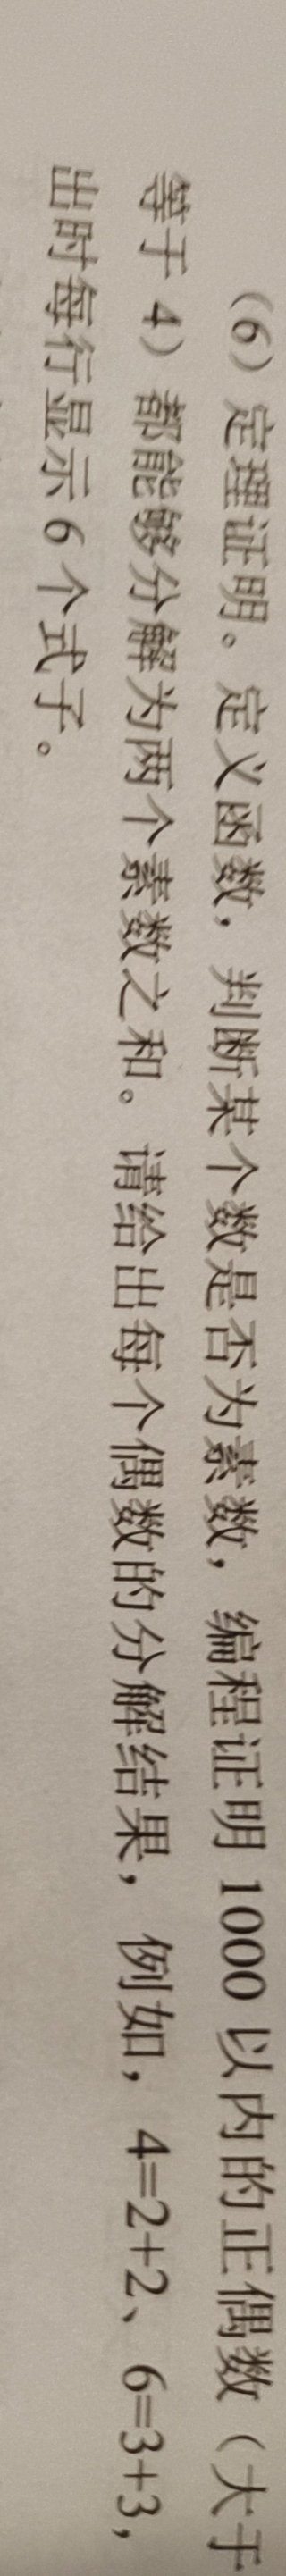 （6）定理证明。定义函数，判断某个数是否为素数，编程证明 1000 以内的正偶数（大于
等于 4）都能够分解为两个素数之和。请给出每个偶数的分解结果，例如，4=2+2、6=3+3，
出时每行显示 6 个式子。